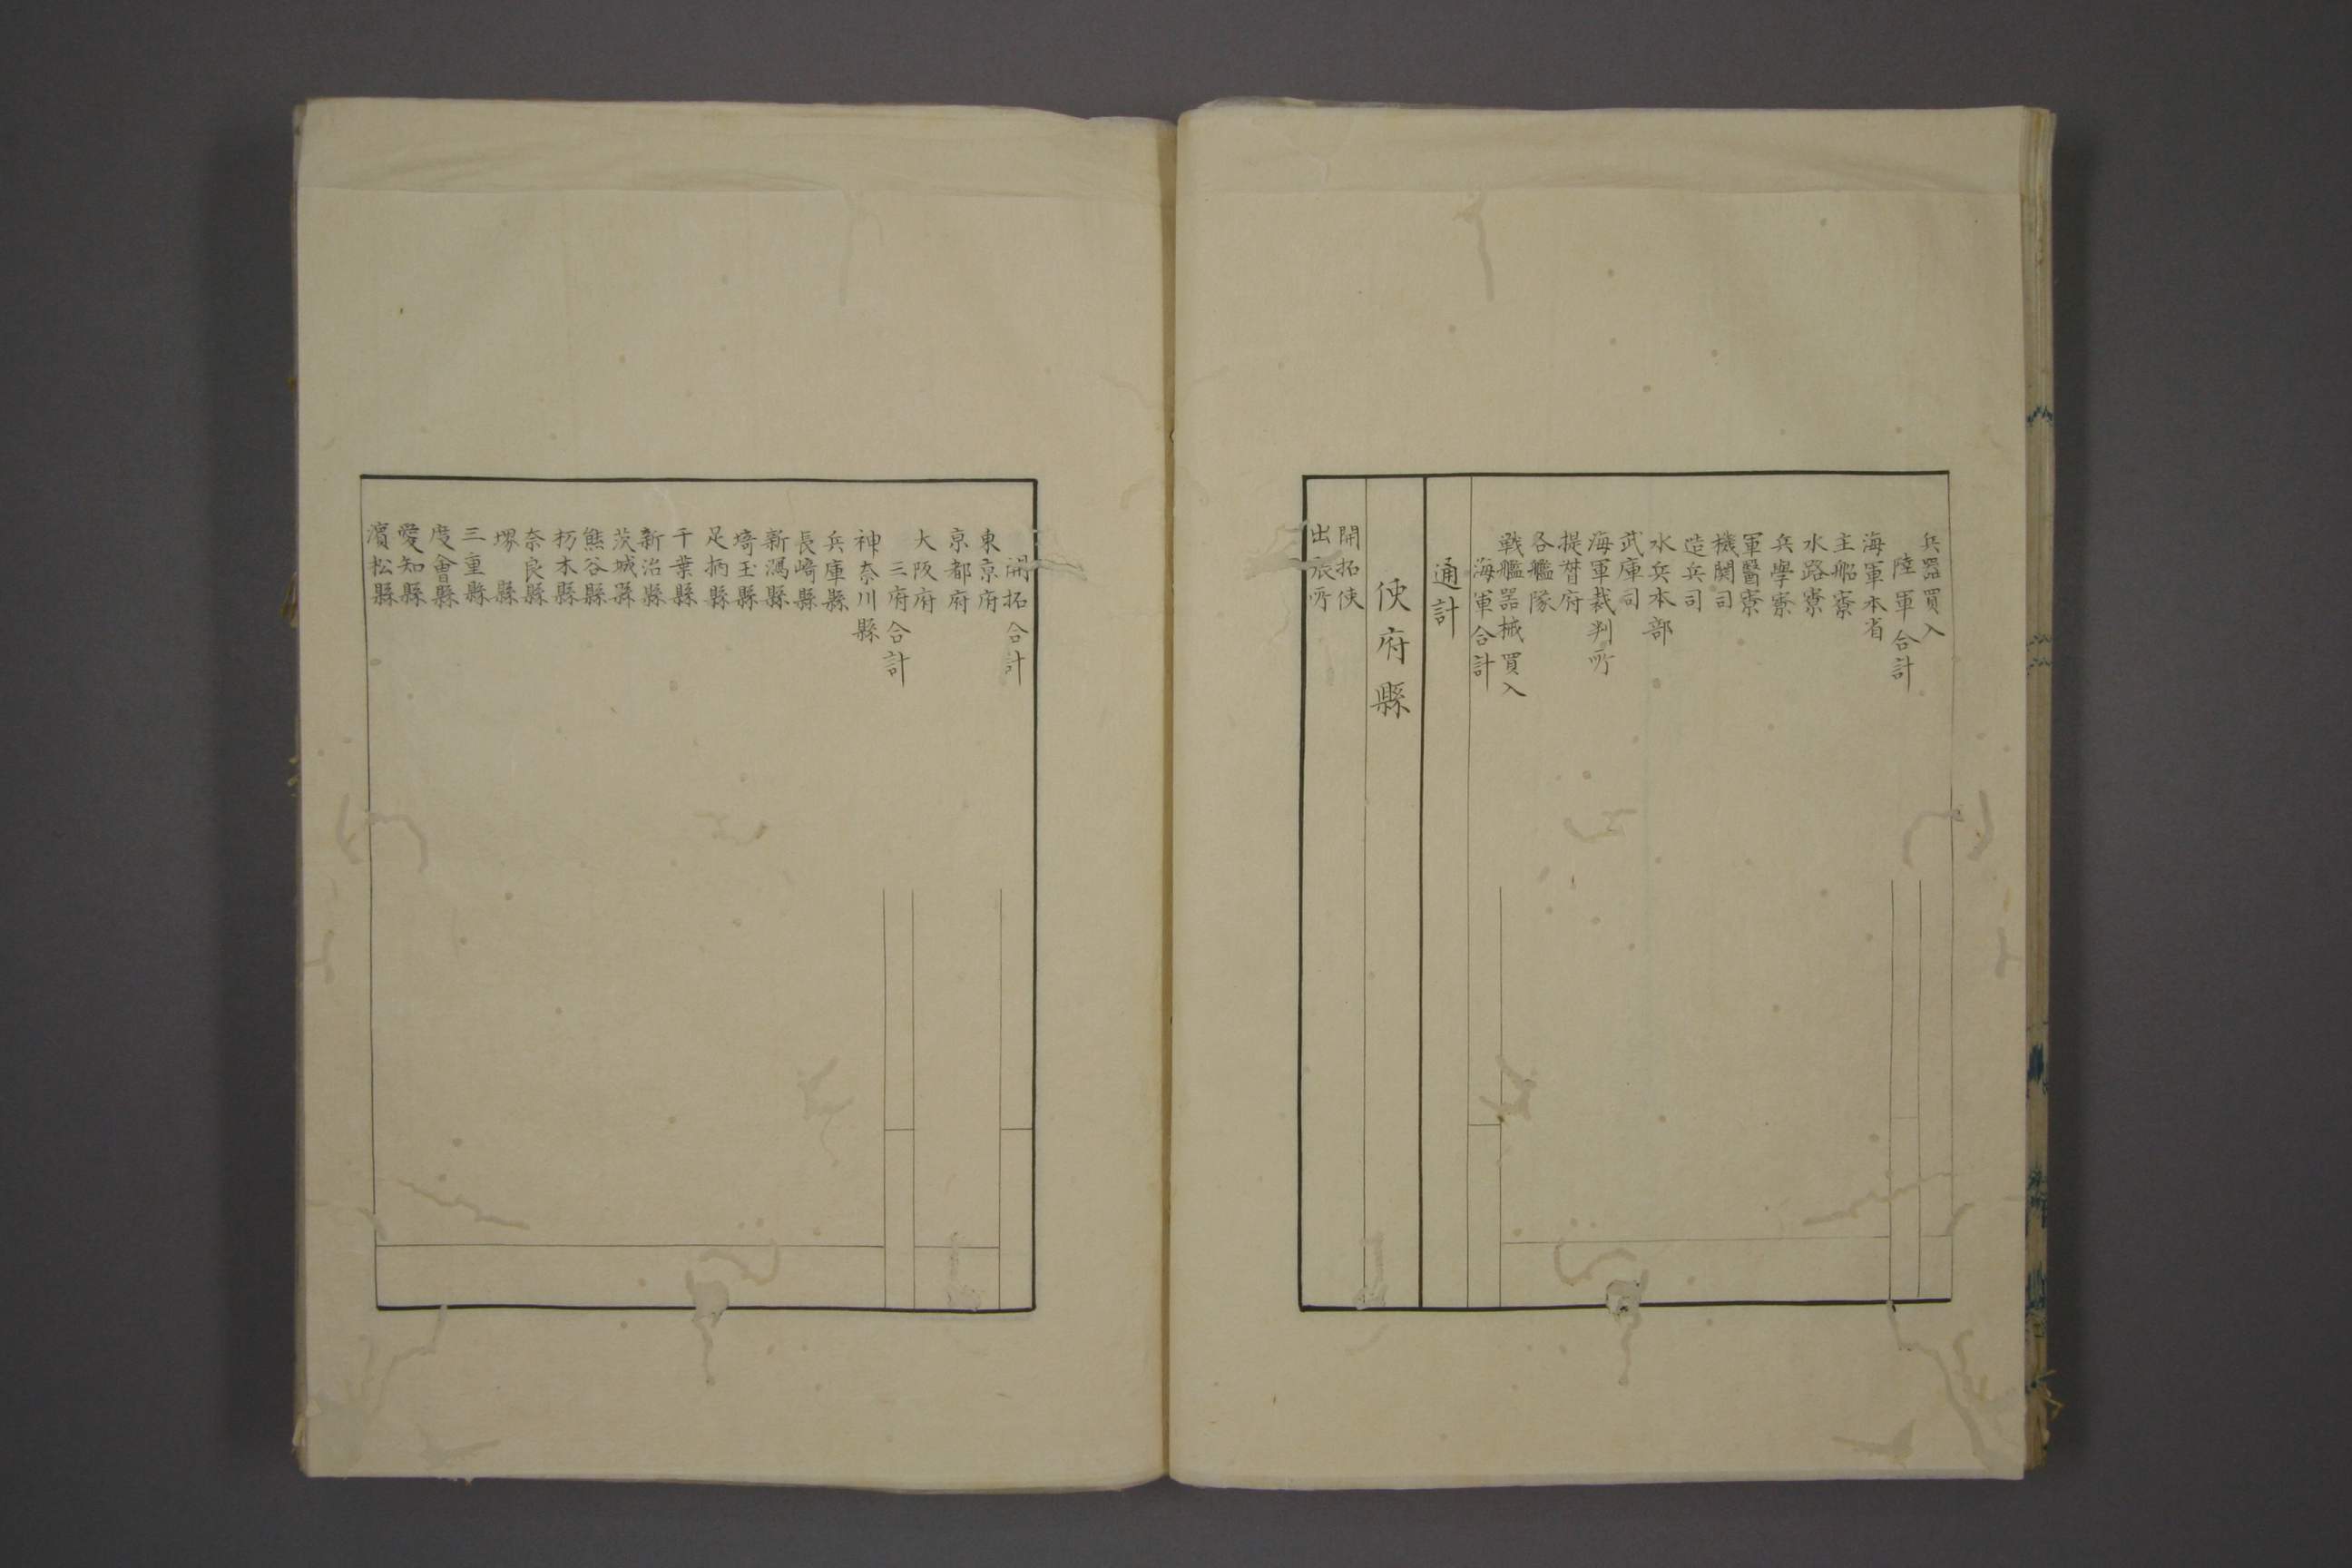 兵器買入
陸軍合計
海軍本省
主船寮
水路寮
兵學寮
軍醫寮
機関司
造兵司
水兵本部
武庫司
海軍裁判所
提督府
各艦隊
戦艦器械買入
海軍合計
通計
使府縣
開拓使
出張所
開拓合計
東京府
京都府
大阪府
三府合計
神奈川縣
兵庫縣
長﨑縣
新潟縣
埼玉縣
足柄縣
千葉縣
新治縣
茨城縣
熊谷縣
栃木縣
奈良縣
堺縣
三重縣
度會縣
愛知縣
濱松縣